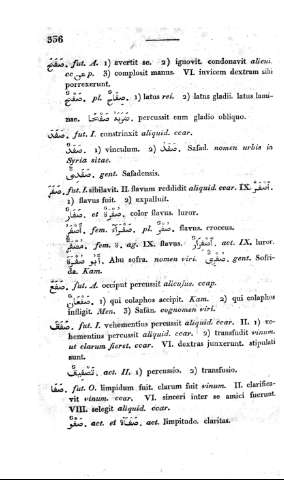 356
صَفَحَ. fut. A. 1) avertit se. 2) ignovit. condonavit alicui
cc عن p. 3) complosit manus. VI. invicem dextram sibi
porrexerunt.
صَفْحٌ. pl. صِفَاحٌ. 1) latus rei. 2) latus gladii. latus lami-
nae. ضَرَبَهُ صَفْحًا percussit eum gladio obliquo.
صَفَدَ. fut. I. constrinxit aliquid. ccar.
صَفَدٌ. 1) vinculum. 2) صَفَدُ. Safad. nomen urbis in
Syria sitae.
صَفَدِىٌّ. gent. Safadensis.
صَفَرَ. fut. I. sibilavit. II. flavum reddidit aliquid. ccar. IX. اَصْفَرَّ.
1) flavus fuit. 2) expalluit.
صَفَارٌ. et صُفْرَةٌ. color flavus. luror.
أَصْفَرُ. fem. صَفْرَاءُ. pl. صُفْرٌ. flavus. croceus.
مُصْفَرٌّ. fem. ةٌ. ag. IX. flavus. اِصْفِرَارٌ. act. IX. luror.
أَبُو صُفْرَةَ. Abu sofra. nomen viri. صُفْرِىٌّ. gent. Sofri-
da. Kam.
صَفَعَ. fut. A. occiput percussit alicujus. ccap.
صَفْعَانُ. 1) qui colaphos accipit. Kam. 2) qui colaphos
infligit. Men. 3) Safân. cognomen viri.
صَفَقَ. fut. I. vehementius percussit aliquid. ccar. II. 1) ve-
hementius percussit aliquid. ccar. 2) transfudit vinum.
ut clarum fieret. ccar. VI. dextras junxerunt. stipulati
sunt.
تَصْفِيقٌ. act. II. 1) percussio. 2) transfusio.
صَفَا. fut. O. limpidum fuit. clarum fuit vinum. II. clarifica-
vit vinum. ccar. VI. sinceri inter se amici fuerunt.
VIII. selegit aliquid. ccar.
صَفْوٌ. act. et صَفَاءٌ. act. limpitudo. claritas.